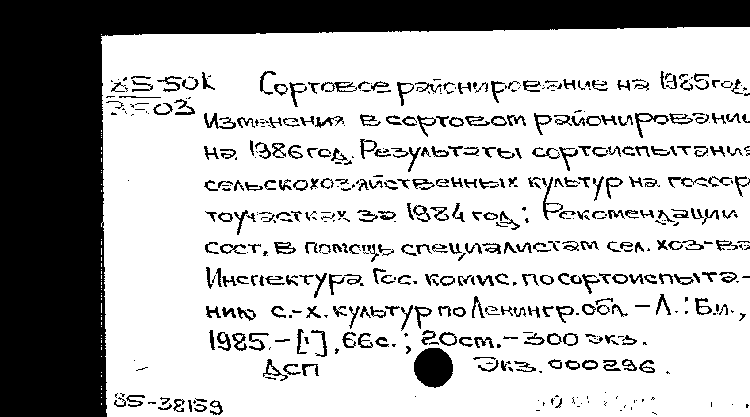 85-50к Сортовое районирование на 1985 год.
3503
Изменения в сортовом районировании
на 1986 год. Результаты сортоиспытания
сельскохозяйственных культур на госсор-
тоучастках за 1984 год; Рекомендации
сост. в помощь специалистам сел. хоз-ва
Инспектура Гос. комис. по сортоиспыта-
нию с.-х. культур по Ленингр. обл. – Л.: Б.и.,
1985. – [1], 66с.; 20см. – 300 экз.
ДСП Экз. 000296.
85-38159